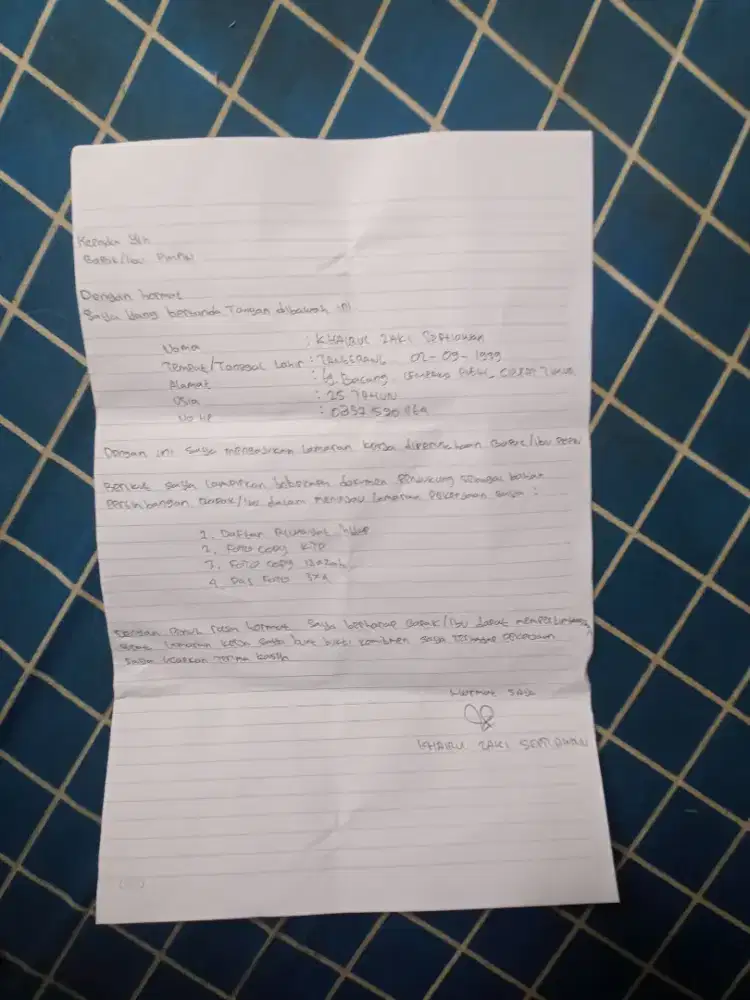 Kepada Yth
Bapak/Ibu
Dengan hormat
Saya yang bertanda Tangan dibawah ini
Nama : KHAIRUL ZAKI SEPTIAWAN
Tempat/Tanggal Lahir : TANGERANG 02-09-1999
Alamat :
Usia : 25 TAHUN
No HP :
Dengan ini saya mengajukan lamaran kerja Bapak/Ibu
Berikut saya lampirkan beberapa dokumen sebagai bahan
Pertimbangan Bapak/Ibu dalam lamaran Pekerjaan saya :
1. Daftar Riwayat hidup
2. Foto Copy KTP
3. Foto copy ijazah
4. Pas Foto 3x4
Dengan Penuh rasa hormat saya berharap Bapak/Ibu dapat
lamaran kerja saya bukti komitmen saya Pekerjaan
saya ucapkan Terima kasih
Hormat saya
KHAIRUL ZAKI SEPTIAWAN